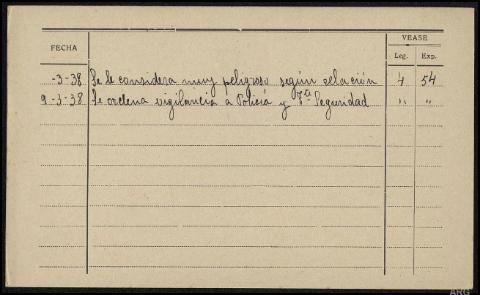 VEASE
FECHA Leg. Exp.
-3-38. Se le considera muy peligroso según relación 4 54
9-3-38. Se ordena vigilancia a Policía y Jª Seguridad " "
ARG